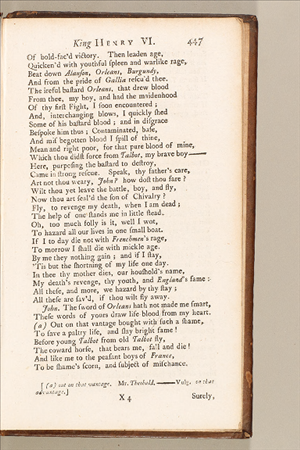 King HENRY VI. 447
Of bold-fac'd victory. Then leaden age,
Quicken'd with youthful spleen and warlike rage,
Beat down Alanson, Orleans, Burgundy,
And from the pride of Gallia rescu'd thee.
The ireful bastard Orleans, that drew blood
From thee, my boy, and had the maidenhood
Of thy first Fight, I soon encountered;
And, interchanging blows, I quickly shed
Some of his bastard blood; and in disgrace
Bespoke him thus; Contaminated, base,
And mis-begotten blood I spill of thine,
Mean and right poor, for that pure blood of mine,
Which thou didst force from Talbot, my brave boy——
Here, purposing the bastard to destroy,
Came in strong rescue. Speak, thy father's care,
Art not thou weary, John? how dost thou fare?
Wilt thou yet leave the battle, boy, and fly,
Now thou art seal'd the son of Chivalry?
Fly, to revenge my death, when I am dead;
The help of one stands me in little stead.
Oh, too much folly is it, well I wot,
To hazard all our lives in one small boat.
If I to day die not with Frenchmen's rage,
To morrow I shall die with mickle age.
By me they nothing gain; and if I stay,
'Tis but the shortning of my life one day.
In thee thy mother dies, our houshold's name,
My death's revenge, thy youth, and England's fame:
All these, and more, we hazard by thy stay;
All these are sav'd, if thou wilt fly away.
John. The sword of Orleans hath not made me smart,
These words of yours draw life blood from my heart.
(a) Out on that vantage bought with such a shame,
To save a paltry life, and slay bright fame!
Before young Talbot from old Talbot fly,
The coward horse, that bears me, fall and die!
And like me to the peasant boys of France,
To be shame's scorn, and subject of mischance.
[(a) out on that vantage. Mr. Theobald.——Vulg. on that
advantage.]
X 4 Surely,